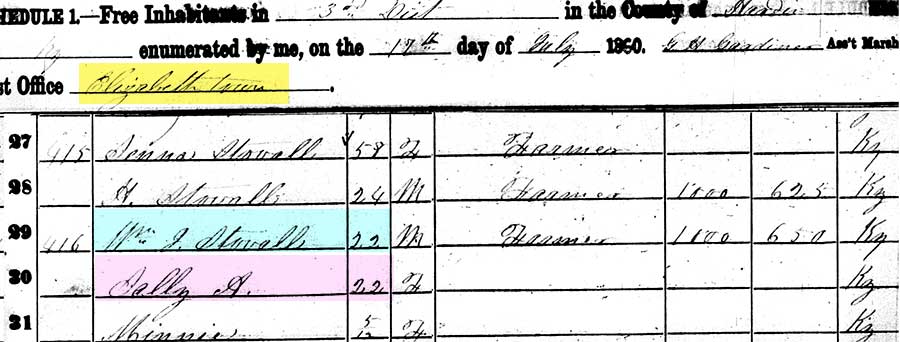 HEDULE 1.—Free Inhabitants in 3rd Dist in the County of Hardin
Ky enumerated by me, on the 17th day of July 1860. G H Gardiner Ass't Marsh
st Office Elizabethtown.
27 415 Stovall 58 F Farmer Ky
28 H. Stovall 24 M Farmer 1000 625 Ky
29 416 Wm J. Stovall 22 M Farmer 1100 650 Ky
30 Sally A. 22 F Ky
31 Minnie 5/12 F Ky